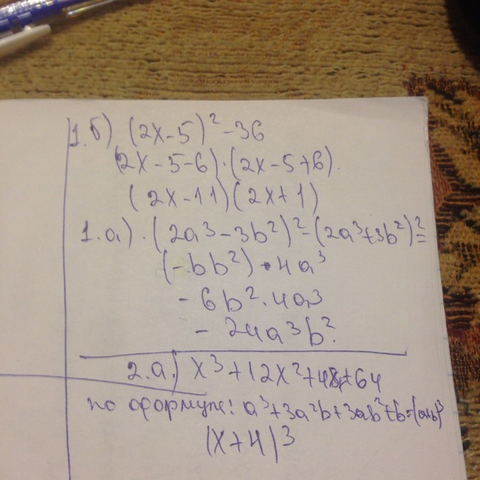 1.б) (2x-5)²-36
(2x-5-6)·(2x-5+6).
(2x-11)(2x+1)
1.а)·(2a³-3b²)²-(2a³+3b²)²=
(-6b²)·4a³
-6b²·4a3
-24a³b².
2.а) x³+12x²+48x+64
по формуле: a³+3a²b+3ab²+b=(a+b)³
(x+4)³